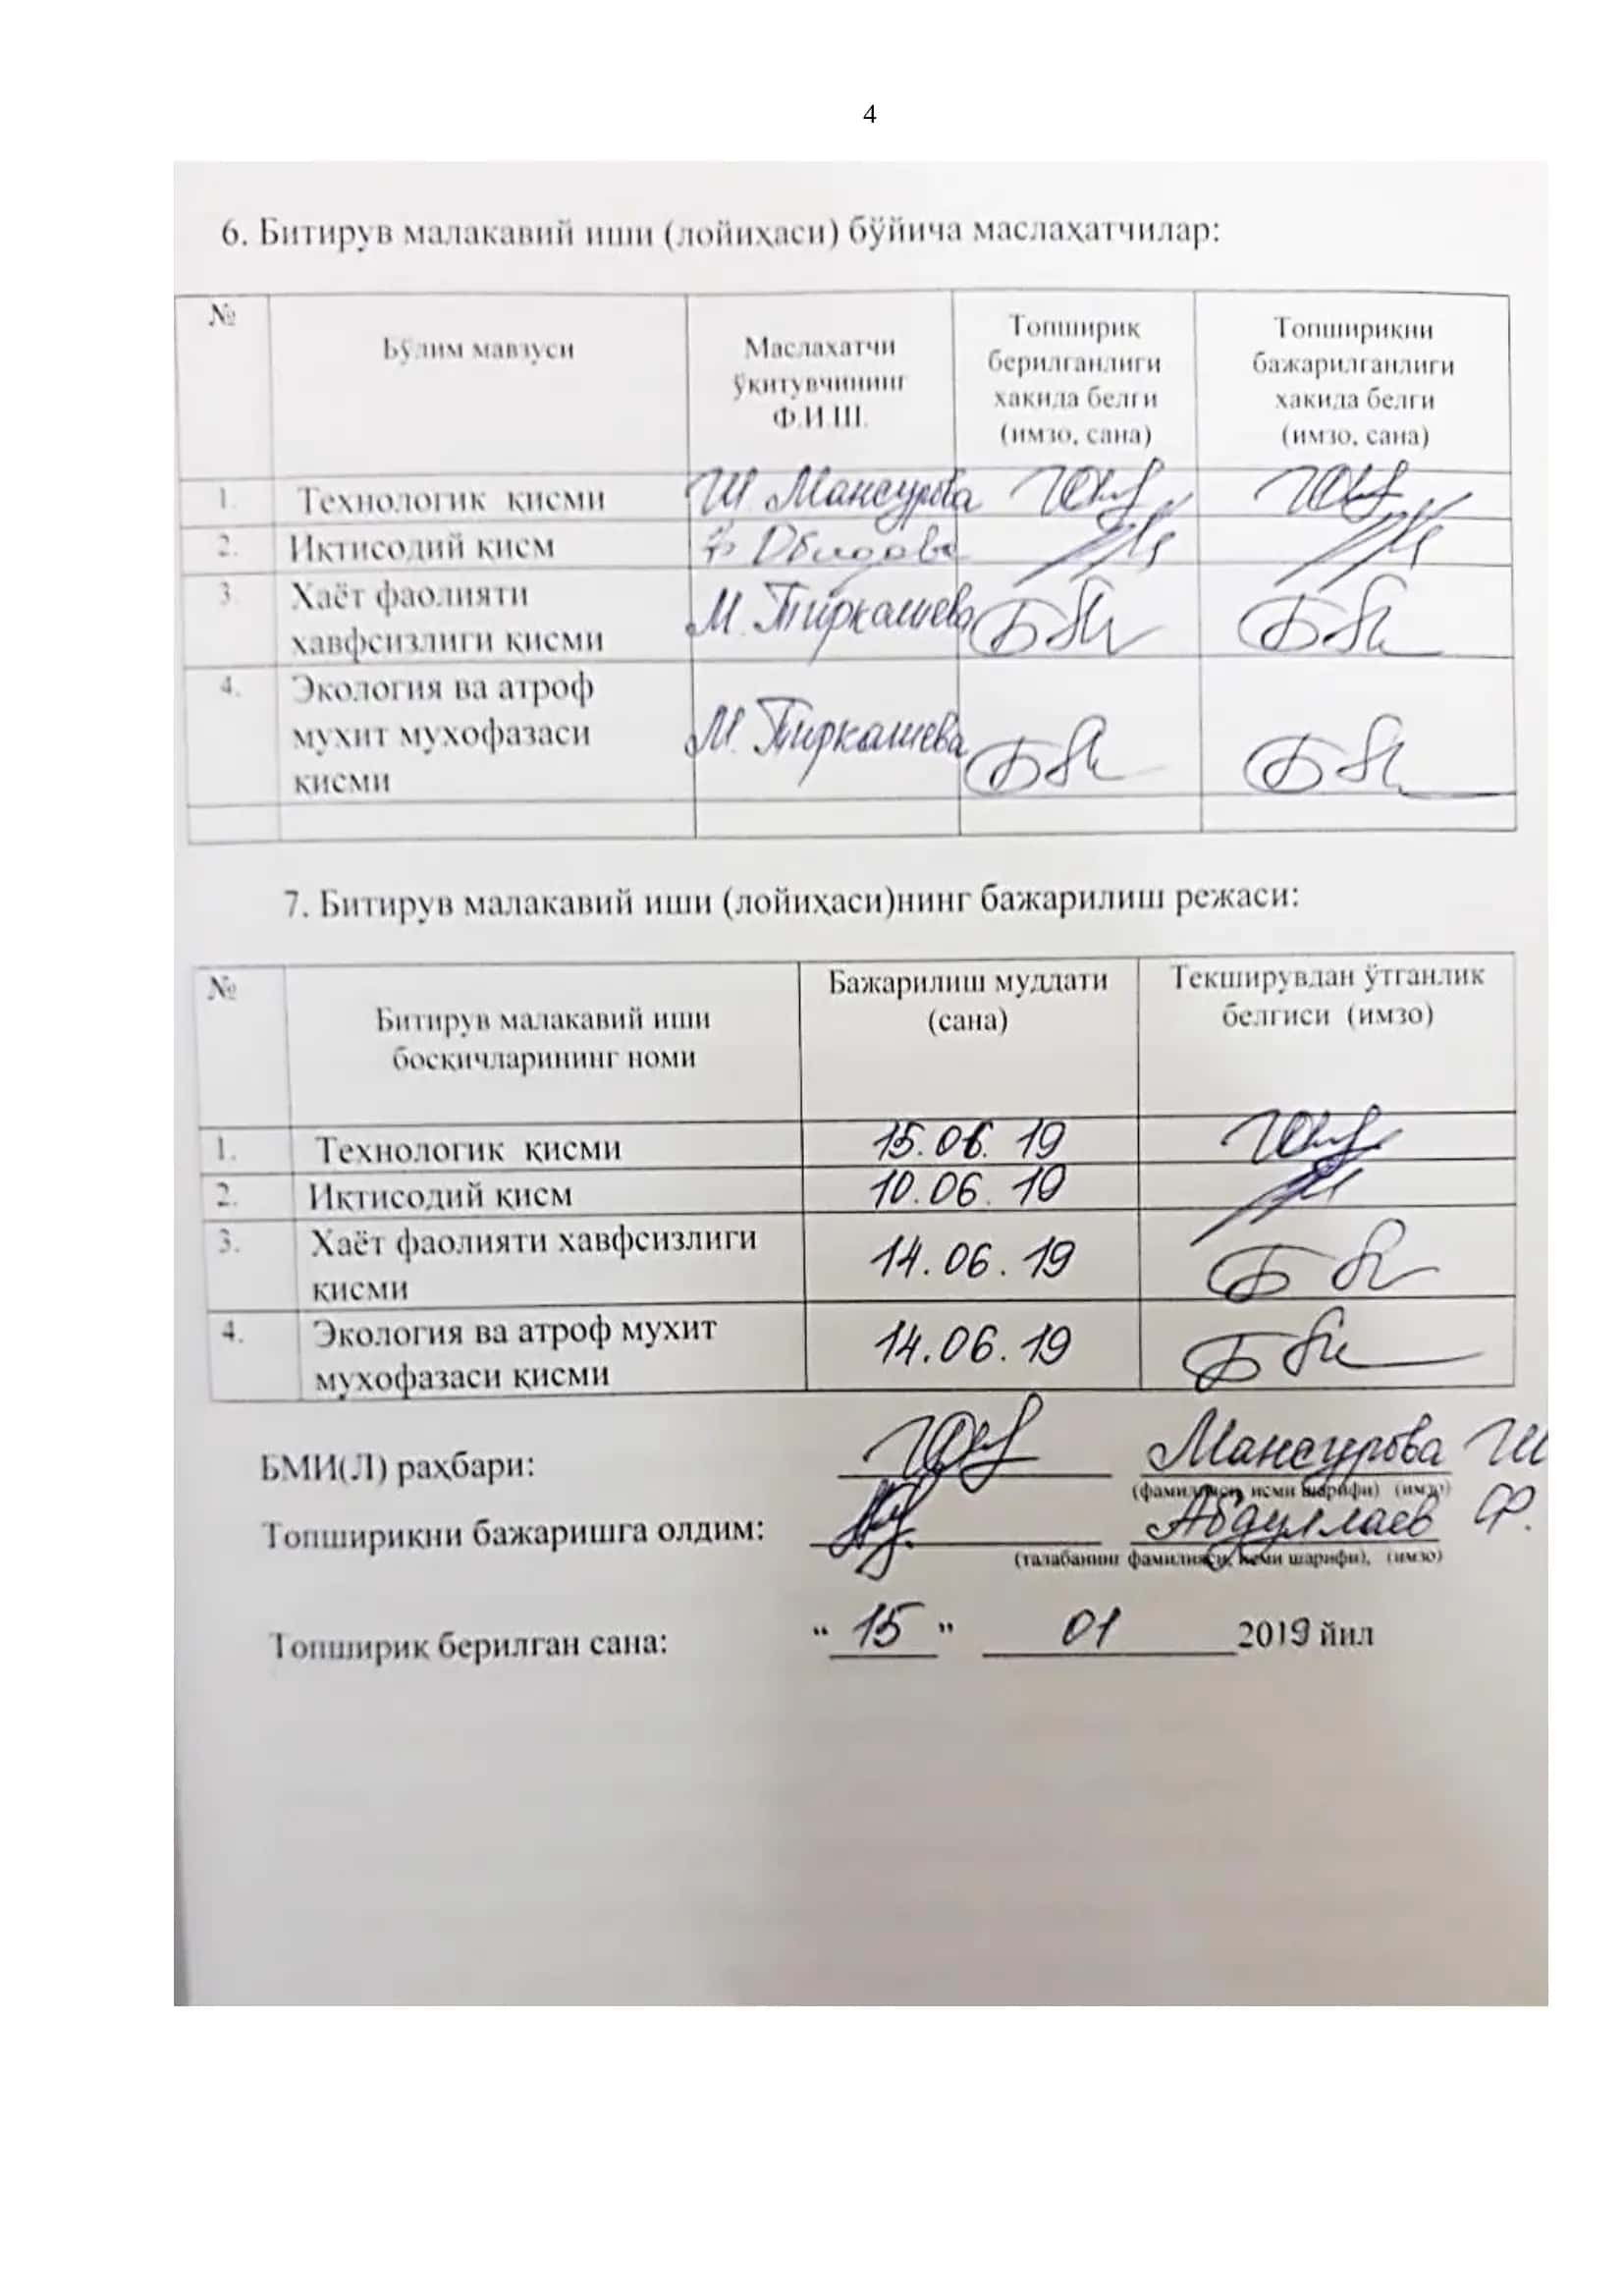 4
6. Битирув малакавий иши (лойиҳаси) бўйича маслаҳатчилар:
№
Бўлим мавзуси
Маслахатчи
ўқитувчининг
Ф.И.Ш.
Топшириқ
берилганлиги
хакида белги
(имзо, сана)
Топшириқни
бажарилганлиги
хакида белги
(имзо, сана)
1. Технологик қисми Ш. Мансурова
2. Иқтисодий қисм
3. Хаёт фаолияти
хавфсизлиги қисми
М. Тиркашева
4. Экология ва атроф
мухит мухофазаси
қисми
М. Тиркашева
7. Битирув малакавий иши (лойиҳаси)нинг бажарилиш режаси:
№
Битирув малакавий иши
босқичларининг номи
Бажарилиш муддати
(сана)
Текширувдан ўтганлик
белгиси (имзо)
1. Технологик қисми 15.06.19
2. Иқтисодий қисм 10.06.19
3. Хаёт фаолияти хавфсизлиги
қисми
14.06.19
4. Экология ва атроф мухит
мухофазаси қисми
14.06.19
БМИ(Л) раҳбари: Мансурова Ш
(фамилияси, исми шарифи) (имзо)
Топшириқни бажаришга олдим: Абдуллаев Ф.
(талабанинг фамилияси, исми шарифи), (имзо)
Топшириқ берилган сана: “ 15 ” 01 2019 йил